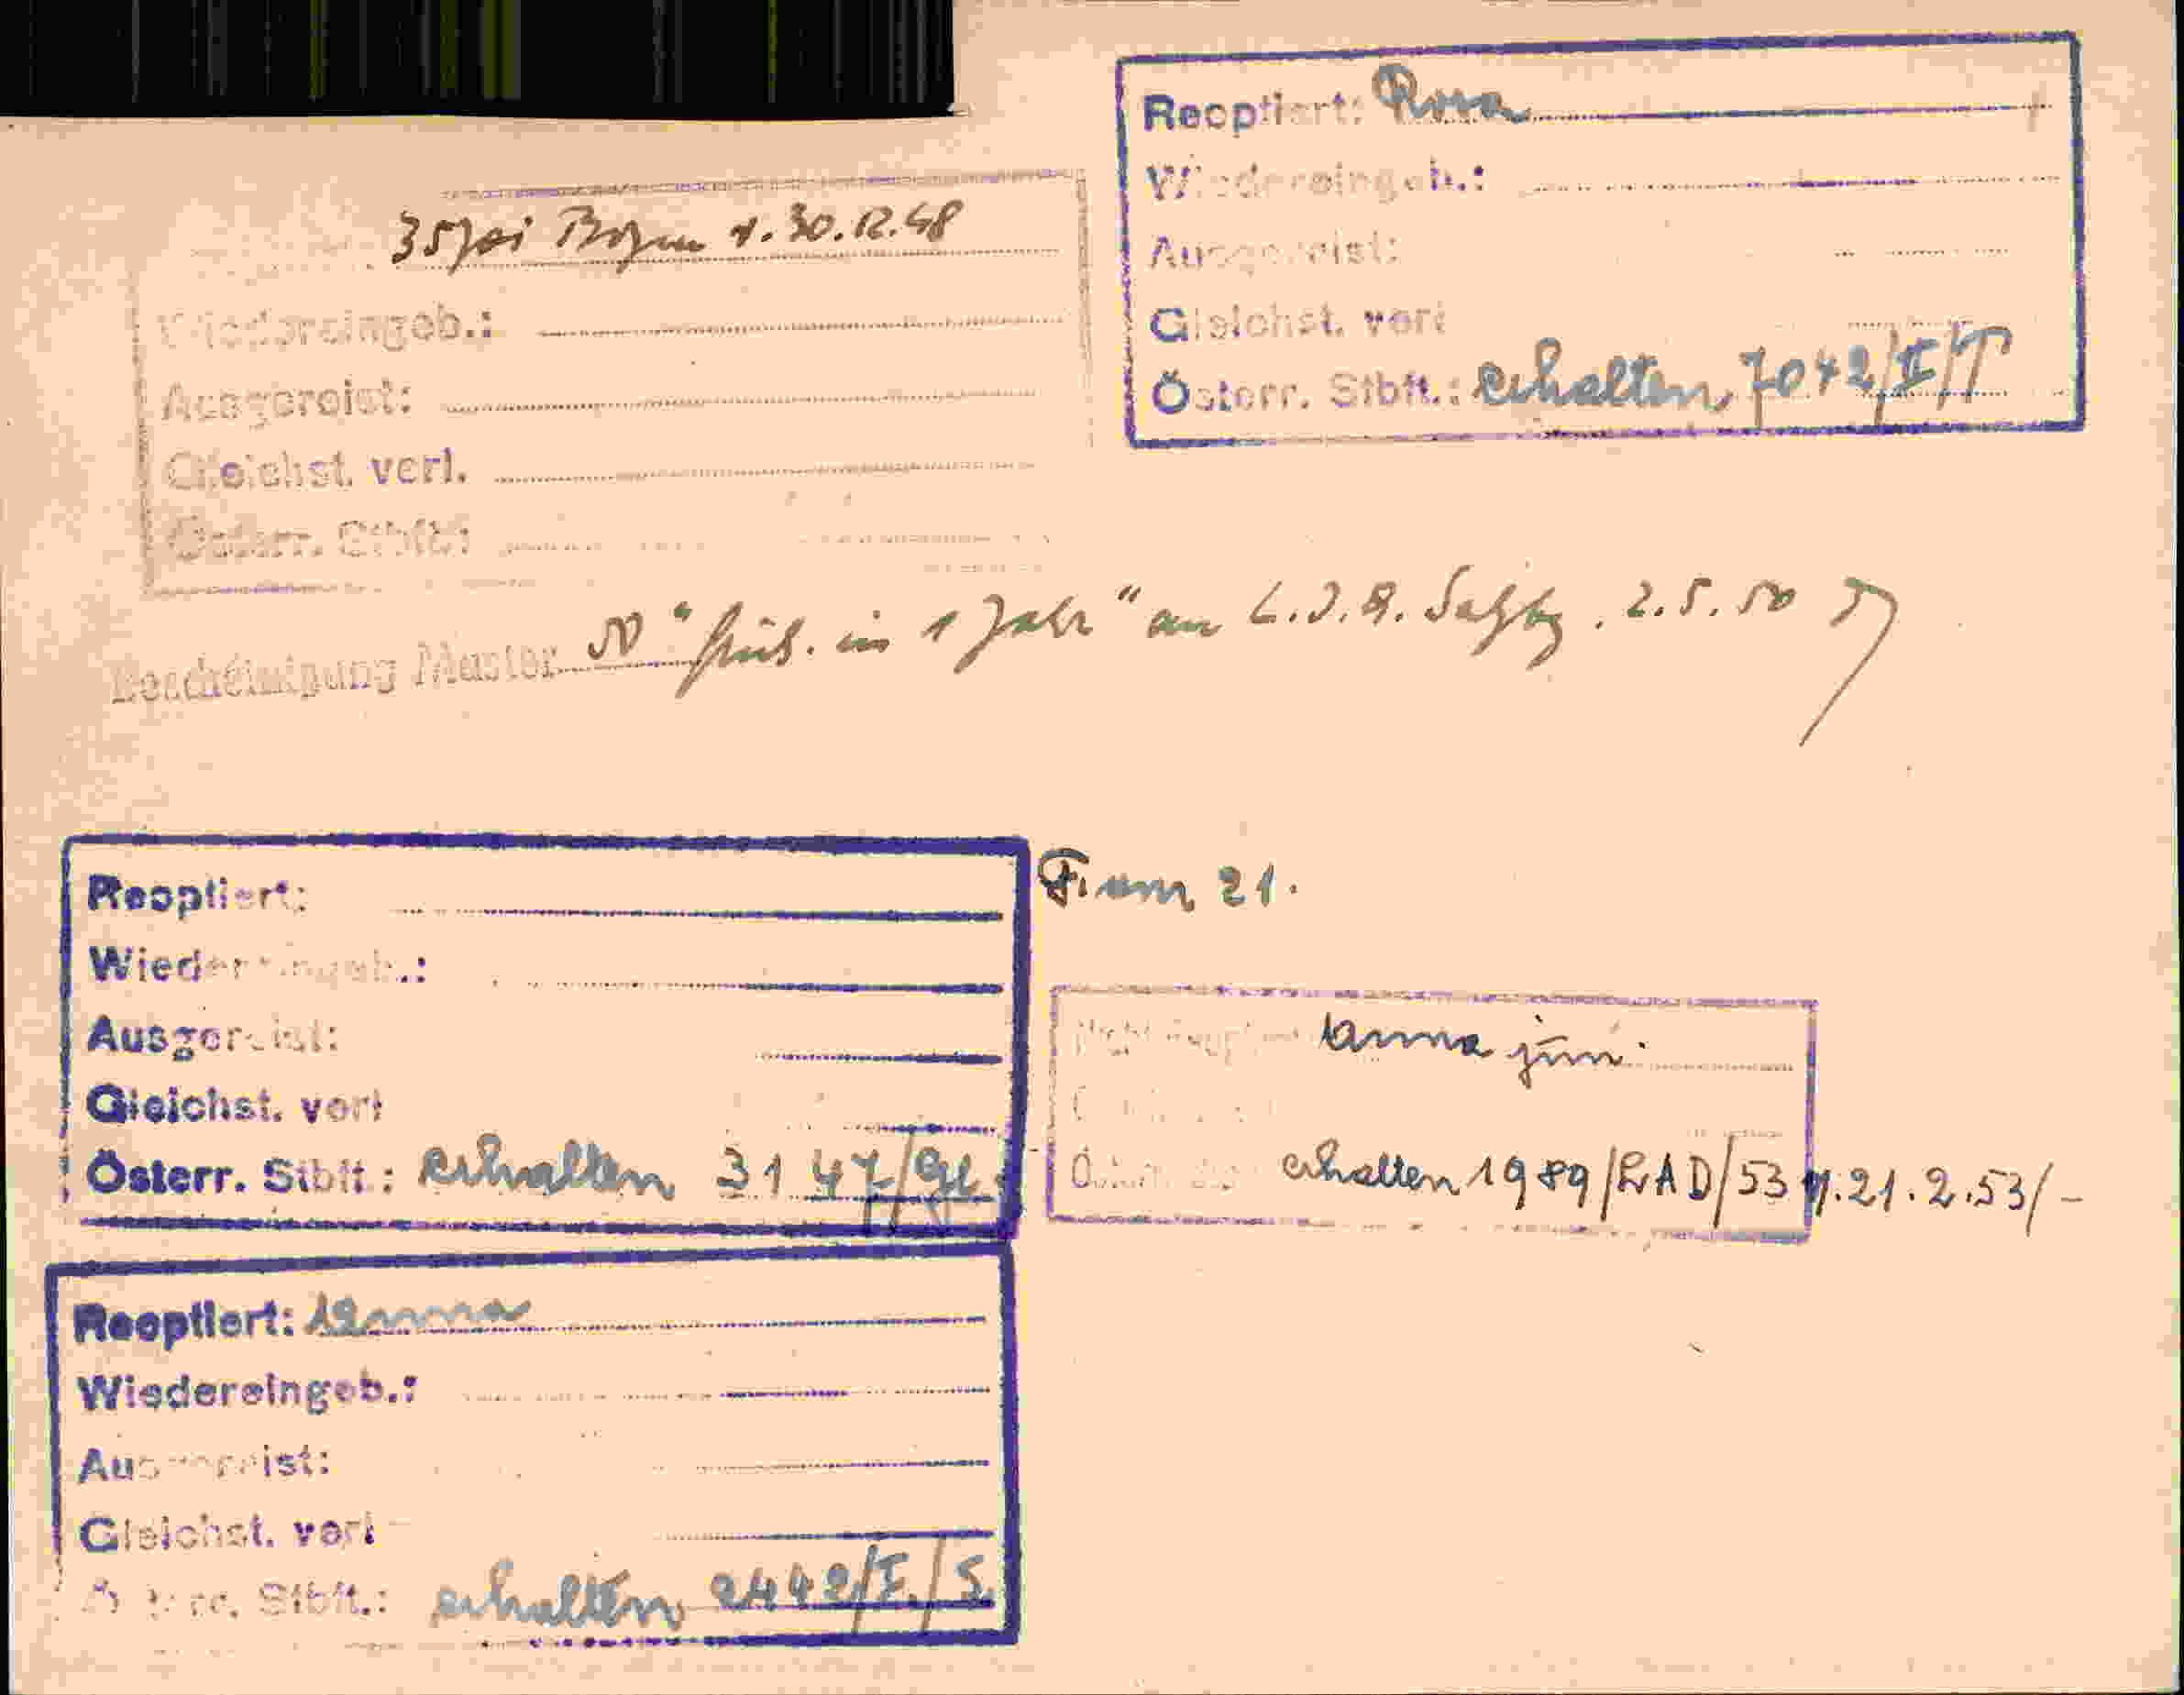 Reoptiert: Rosa
Wiedereingeb.:
Ausgereist:
Gleichst. verl
Österr. Stbft.: erhalten 7042/I/T
Bozen v. 30.12.48
Wiedereingeb.:
Ausgereist:
Gleichst. verl.
Österr. Stbft.:
Bescheinigung Muster 50 " in 1 Jahr" an L.I.A. Salzbg. 2.5.50
Reoptiert:
Wiedereingeb.:
Ausgereist:
Gleichst. verl
Österr. Stbft.: erhalten 3147/
21.
Anna jun.
Österr. erhalten 1989/LAD/53 v. 21.2.53/-
Reoptiert: Anna
Wiedereingeb.:
Ausgereist:
Gleichst. verl
Österr. Stbft.: erhalten 2442/I./S.